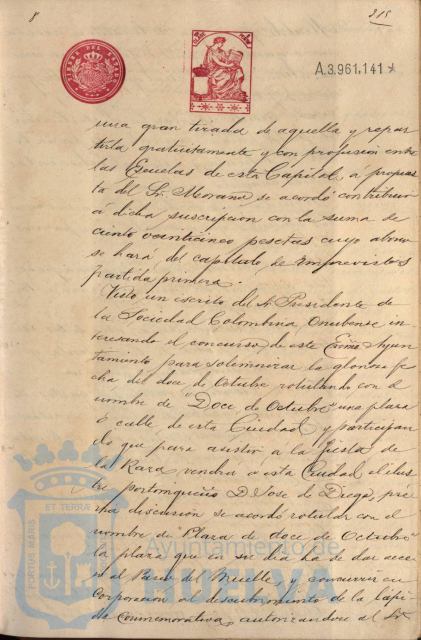 8
215
TIMBRE DEL ESTADO
A.3.961.141
una gran tirada de aquella y repar
tirla gratuitamente y con profusión entre
las Escuelas de esta Capital, a propues
ta del Sr. Morano se acordó contribuir
á dicha suscripcion con la suma de
ciento veinticinco pesetas cuyo abono
se hará del capítulo de Imprevistos
partida primera.
Visto un escrito del Sr. Presidente de
la Sociedad Colombina Onubense in
teresando el concurso de este Excmo Ayun
tamiento para solemnizar la gloriosa fe
cha del doce de Octubre rotulando con el
nombre de "Doce de Octubre" una plaza
ó calle de esta Ciudad y participan
do que para asistir a la fiesta de
la Raza vendrá a esta Ciudad el ilus
tre portorriqueño D. Jose de Diego, pré
via discusion se acordó rotular con el
nombre de "Plaza de doce de Octubre"
la plaza que en su dia ha de dar acce
so al Paseo del Muelle, y concurrir en
Corporacion al descubrimiento de la lápi
da conmemorativa, autorizandose al Sr.
Ayuntamiento de
HUELVA
PORTUS MARIS
ET TERRAE